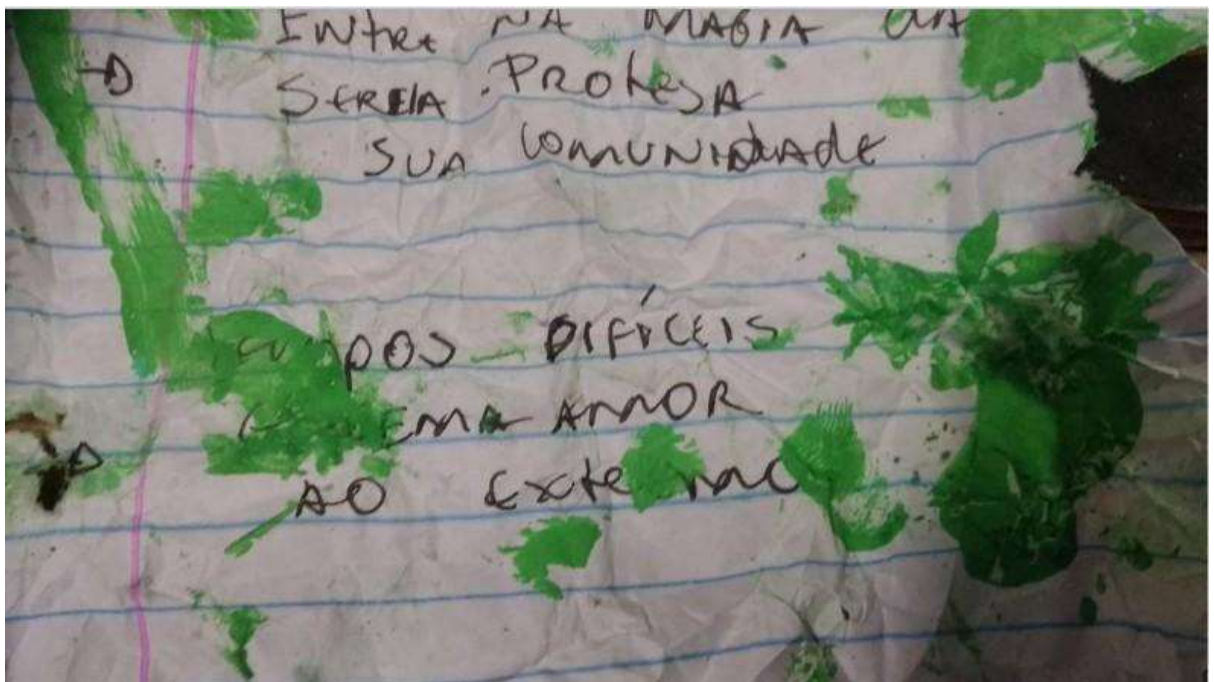 Entre NA MAGIA da
SEREIA. Proteja
SUA COMUNIDADE
DIFÍCEIS
AMOR
AO